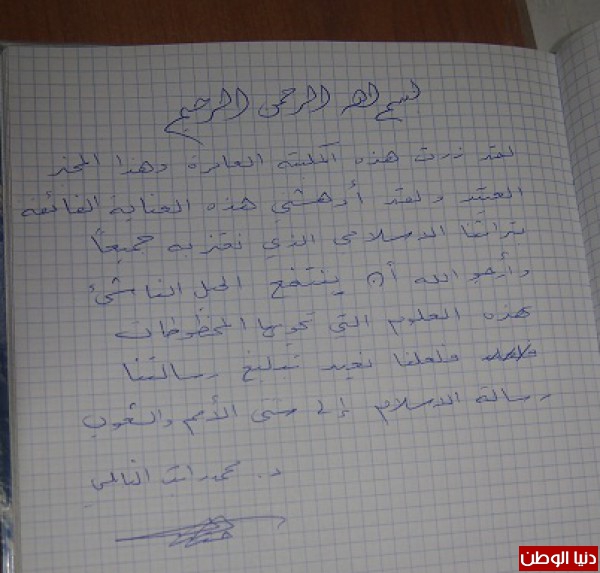 بسم الله الرحمن الرحيم
لقد زرت هذه المكتبة العامرة وهذا المخبر
العتيد ولقد أدهشني هذه العناية الفائقة
بتراثنا الاسلامي الذي نعتز به جميعاً
وأرجو الله أن ينتفع الجيل الناشئ
بهذه العلوم التي تحويها المخطوطات
فلعلنا نعيد تبليغ رسالتنا
رسالة الاسلام إلى شتى الأمم والشعوب
د. محمد راتب النابلسي
دنيا الوطن